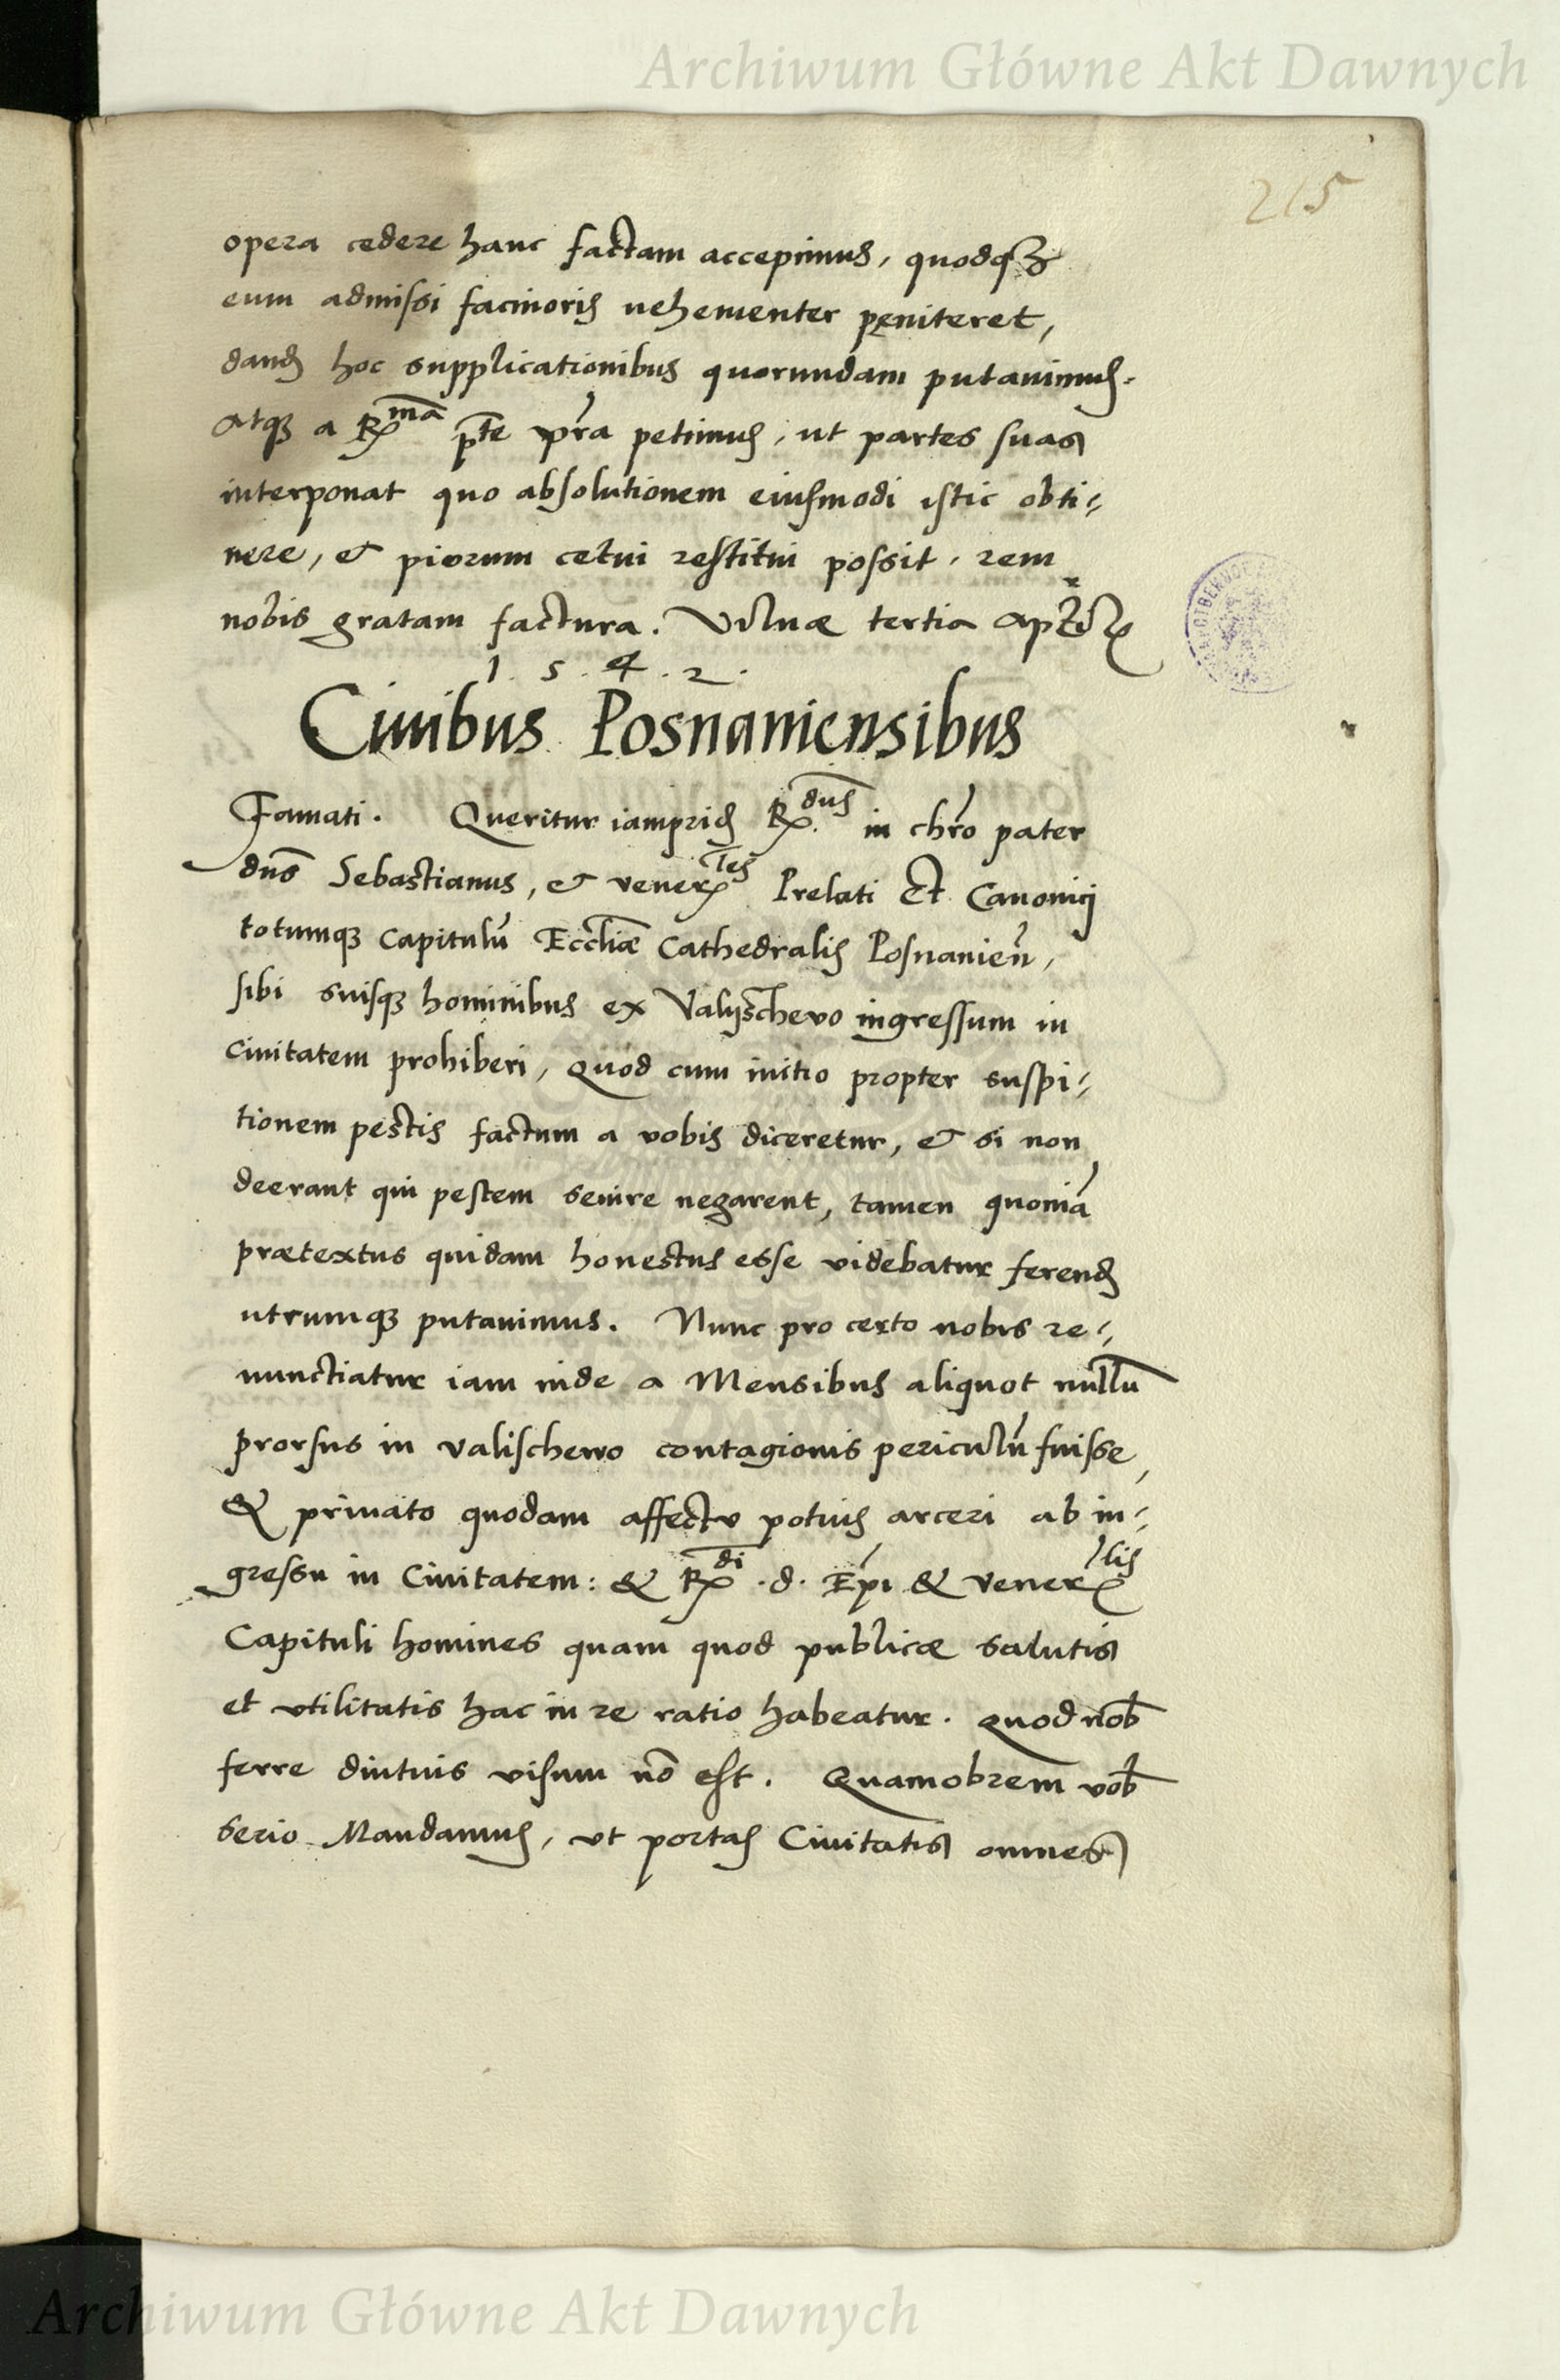 Archiwum Główne Akt Dawnych
215
opera cedere hanc factam accepimus, quodq3
eum admissi facinoris uehementer pęniteret,
dand hoc supplicationibus quorundam putauimus.
Atq3 a R.ma pte vra petimus, ut partes suas
interponat quo absolutionem eiusmodi istic obti-
nere, & piorum cetui restitui possit, rem
nobis gratam factura. Vilnæ tertia
1.5.4.2.
Ciuibus Posnaniensibus
Famati. Queritur iamprid R.dus in chro pater
dns Sebastianus, & vener.les Prelati Et Canonicij
totumq3 Capitulu Eccliæ Cathedralis Posnanien,
sibi suisq3 hominibus ex Valijschevo ingressum in
ciuitatem prohiberi, Quod cum initio propter suspi-
tionem pestis factum a vobis diceretur, & si non
deerant qui pestem seuire negarent, tamen quonia
prætextus quidam honestus esse videbatur ferend
utrumq3 putauimus. Nunc pro certo nobis re-
nunctiatur iam inde a Mensibus aliquot nullu
prorsus in valischewo contagionis periculu fuisse,
& priuato quodam affectu potius arceri ab in-
gressu in Ciuitatem: & R.di .d. Epi & vener.lis
Capituli homines quam quod publicæ salutis
et vtilitatis hac in re ratio habeatur. Quod nob
ferre diutius visum no est. Quamobrem vob
serio Mandamus, vt portas Ciuitatis omnes
Archiwum Główne Akt Dawnych